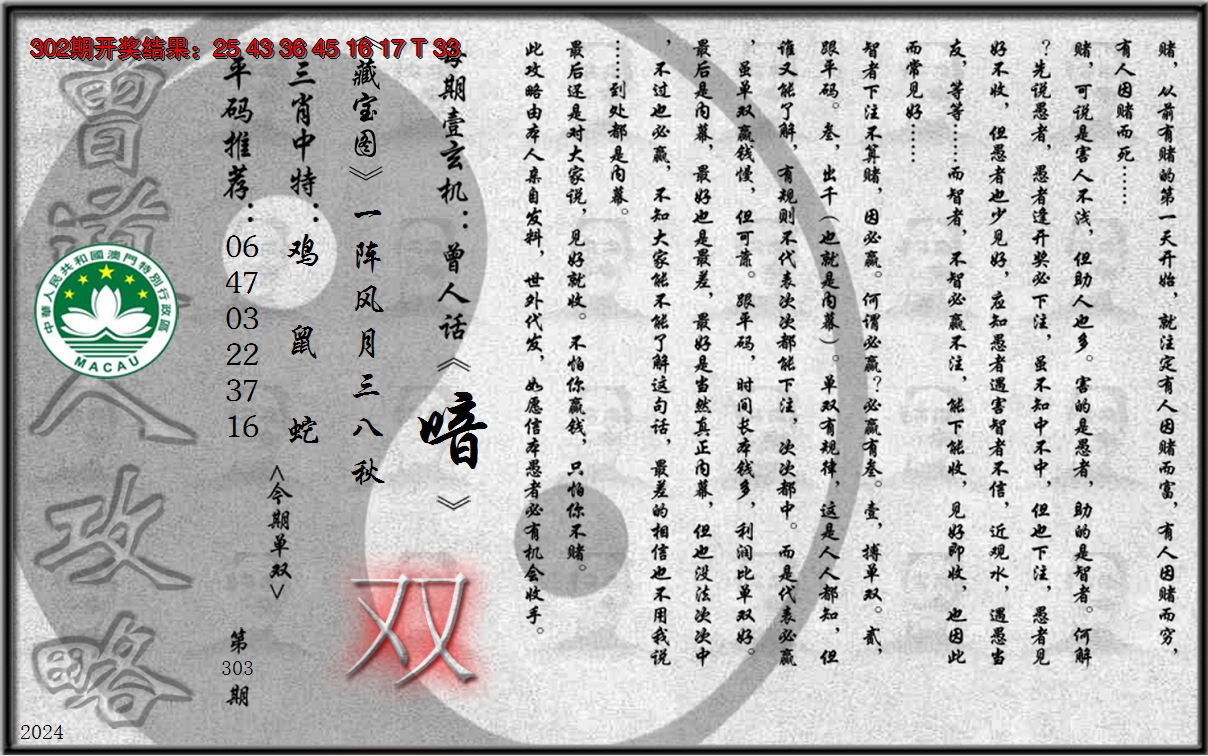 302期开奖结果：25 43 36 45 16 17 T 33
赌，从前有赌的第一天开始，就注定有人因赌而富，有人因赌而穷，
有人因赌而死……
赌，可说是害人不浅，但助人也多。害的是愚者，助的是智者。何解
？先说愚者，愚者逢开奖必下注，虽不知中不中，但也下注，愚者见
好不收，但愚者也少见好，应知愚者遇害智者不信，近观水，遇愚当
友，等等……而智者，不智必赢不注，能下能收，见好即收，也因此
而常见好……
智者下注不算赌，因必赢。何谓必赢？必赢有叁。壹，搏单双。贰，
跟平码。叁，出千（也就是内幕）。单双有规律，这是人人都知，但
谁又能了解，有规则不代表次次都能下注，次次都中。而是代表必赢
，虽单双赢钱慢，但可靠。跟平码，时间长本钱多，利润比单双好。
最后是内幕，最好也是最差，最好是当然真正内幕，但也没法次次中
，不过也必赢，不知大家能不能了解这句话，最差的相信也不用我说
……到处都是内幕。
最后还是对大家说，见好就收。不怕你赢钱，只怕你不赌。
此攻略由本人亲自发料，世外代发，如愿信本愚者必有机会收手。
每期壹玄机：曾人话《暗》
《藏宝图》一阵风月三八秋
三肖中特：鸡 鼠 蛇
平码推荐：06 47 03 22 37 16
<今期单双>
双
第303期
曾道人攻略
中華人民共和國澳門特別行政區
MACAU
2024